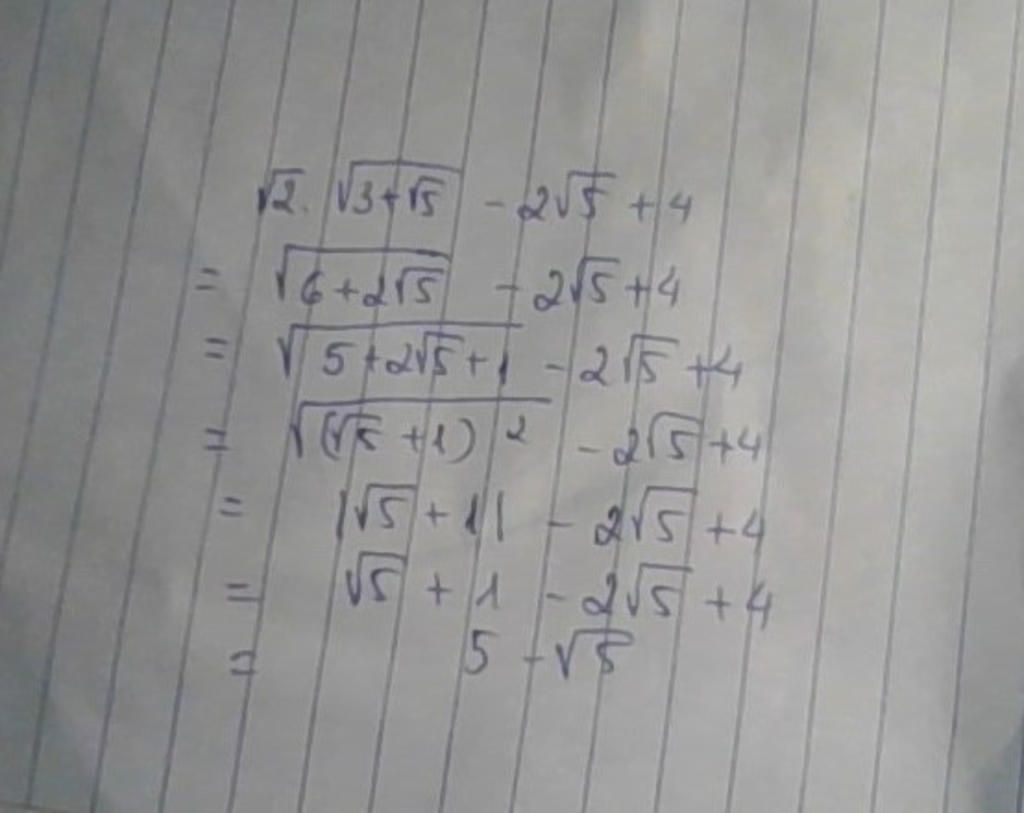 √2. √(3+√5) - 2√5 + 4
= √(6+2√5) - 2√5 + 4
= √(5+2√5+1) - 2√5 + 4
= √((√5+1)²) - 2√5 + 4
= |√5 + 1| - 2√5 + 4
= √5 + 1 - 2√5 + 4
= 5 - √5